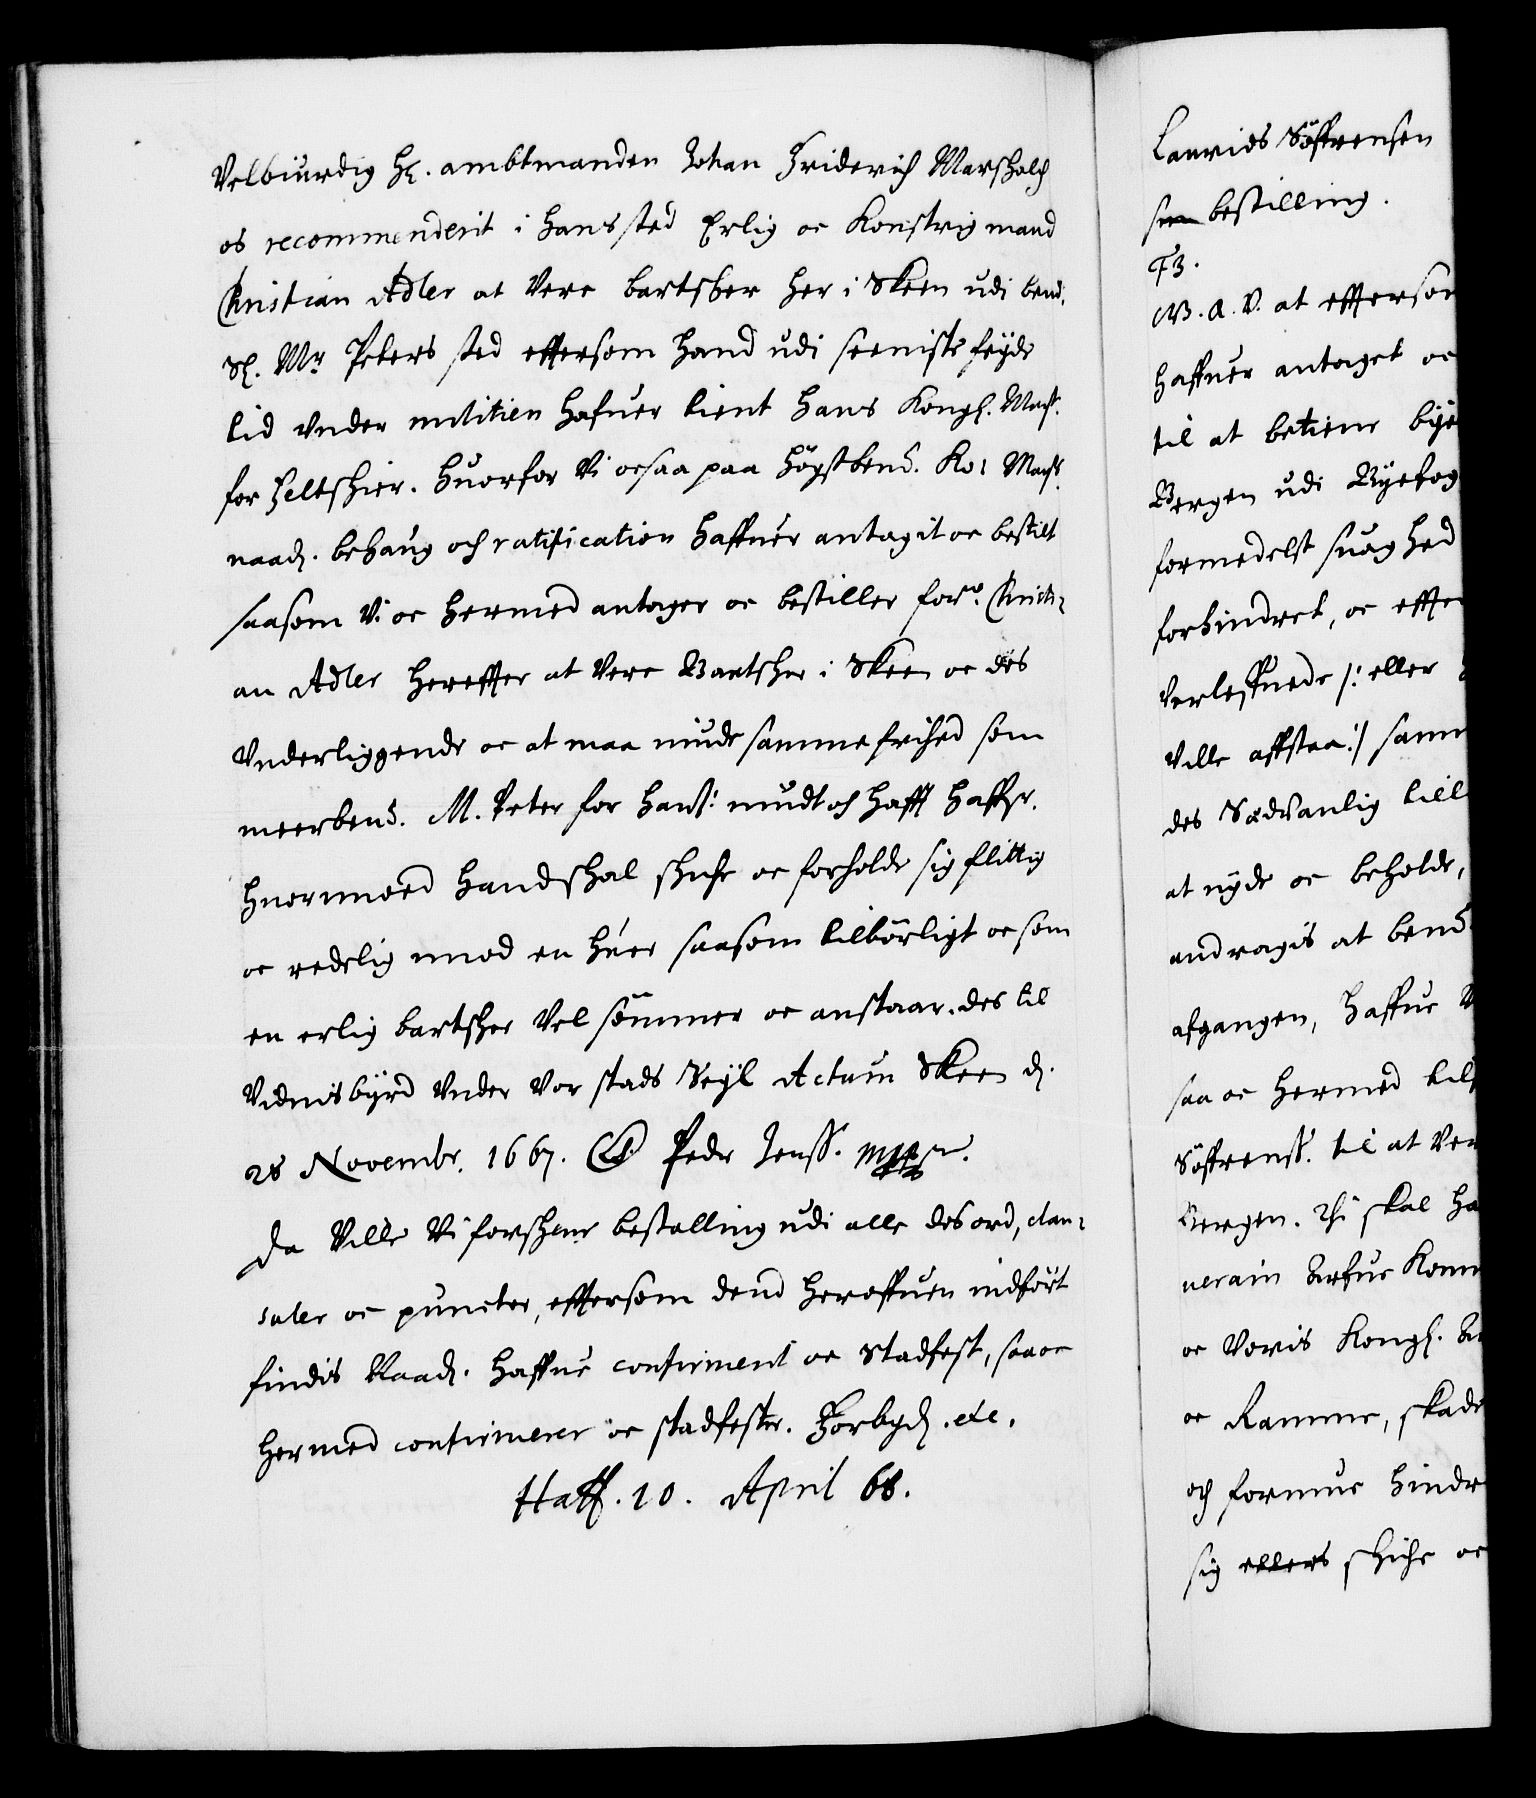 Velbiurdig Hr. ambtmanden Johan Friderich Marschalch
os recommenderit i hans sted Erlig oc Konstrig mand
Christian Adler at Vere bartsker her i Skeen udi bend.
Sl. Mr Peters sted effersom hand udi seeniste feyde
tid vnder militien hafuer tient Hans Kongl. Mayt.
for Feltskier. huorfor Vi ocsaa paa högstbend. Ko: Mayts
naad. behaug och ratification haffuer antagit oc bestilt
saasom Vi oc hermed antager oc bestiller forne Christi-
an Adler hereffter at Vere Bartsker i Skeen oc des
Vnderliggende oc at maa niude samme frihed som
meerbend. M. Peter for hans: niudt och hafft haffr.
huormoed hand skal skicke oc forholde sig flittig
oc redelig imod en huer saasom tilbörligt oc som
en erlig bartsker Vel sömmer oc anstaar. des til
Vidnisbyrd Vnder Vor stads Seyl Actum Skeen d.
28 Novembr. 1667. Peder Jenss.
Da Ville Vi forskrne bestalling udi alle des ord, clau-
suler oc puncter, effersom dend heroffuen indfört
findis Naad. haffue confirmerit oc Stadfest, saa oc
hermed confirmerer oc stadfester. Forbyd. etc.
Haff. 10. April 68.
Laurids Söffrensen
bestilling.
F3.
G. A. V. at effersom
haffuer antaget oc
til at betiene bye
Bergen udi Byefog
formedelst suaghed
forhindret, oc effter
Verleffuede /: eller
Ville affstaa :/ samm
des Sædvanlig till
at nyde oc beholde,
andragis at bend.
afgangen, haffue
saa oc hermed tils
Söffrenss. til at Ver
Bergen. Thi skal ha
uerain Arfue Konn
oc Voris Kongl.
oc Ramme, skade
och formue hindr
sig ellers skicke oc